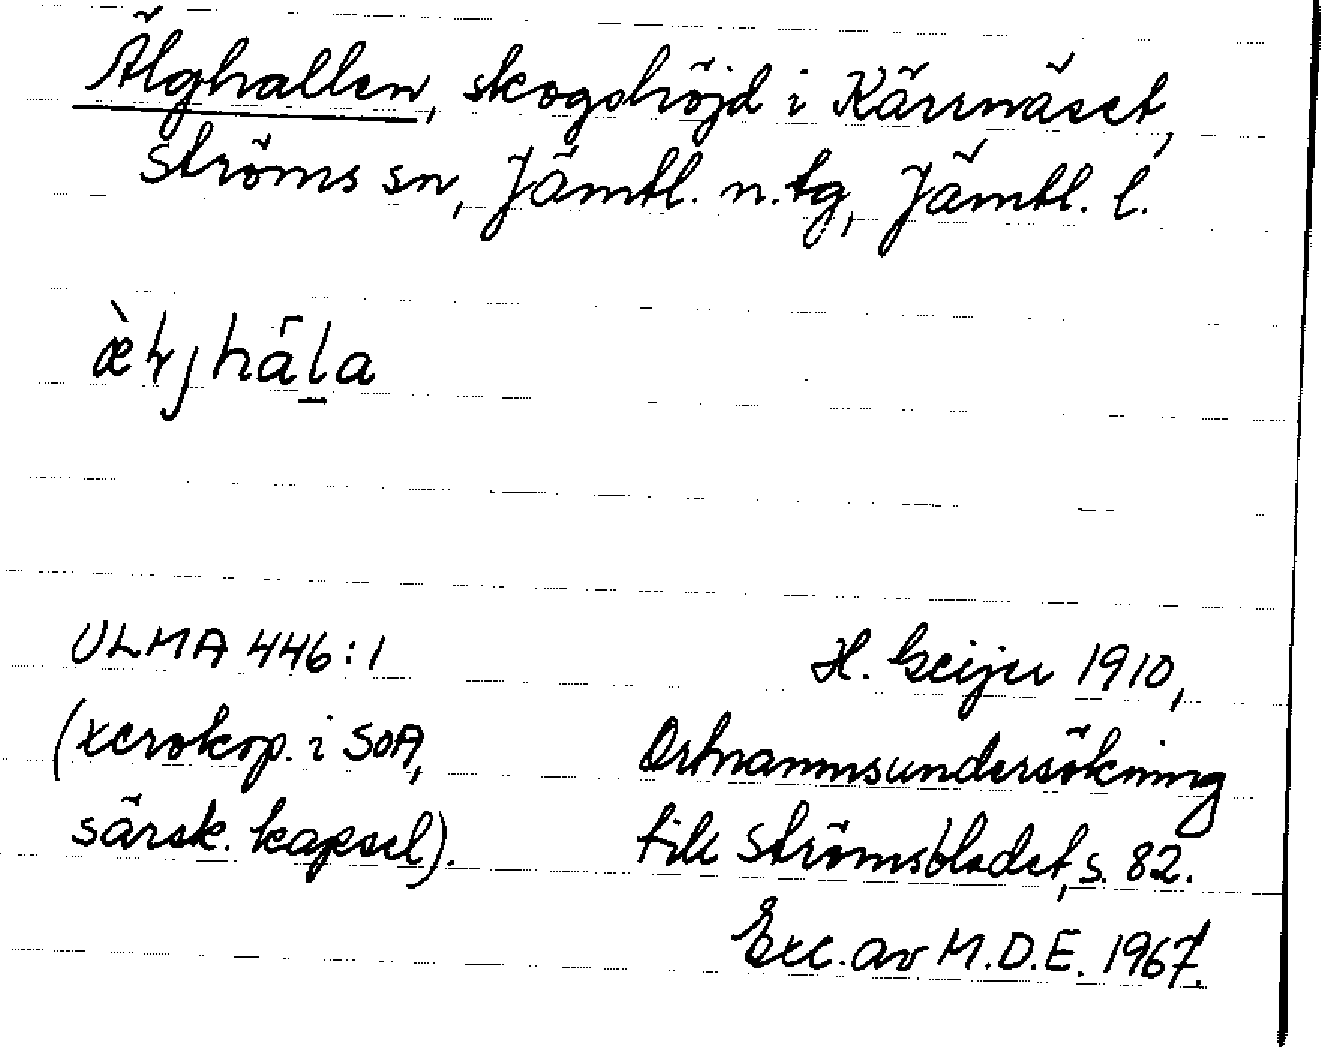 Älghallen, skogshöjd i Kärrnäset,
Ströms sn, Jämtl. n.tg, Jämtl. l.
ULMA 446:1
(xerokop. i SOA,
särsk. kapsel).
H. Geijer 1910,
Ortnamnsundersökning
till Strömsbladet, s. 82.
Exc. av M.D.E. 1967.